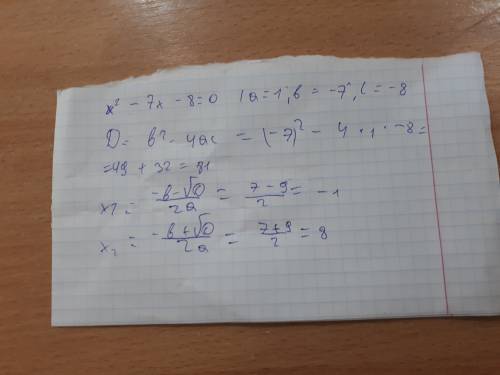 x² - 7x - 8 = 0 / a = 1; b = -7; c = -8
D = b² - 4ac = (-7)² - 4 · 1 · -8 =
= 49 + 32 = 81
x1 = (-b - √D)/2a = (7 - 9)/2 = -1
x₂ = (-b + √D)/2a = (7 + 9)/2 = 8